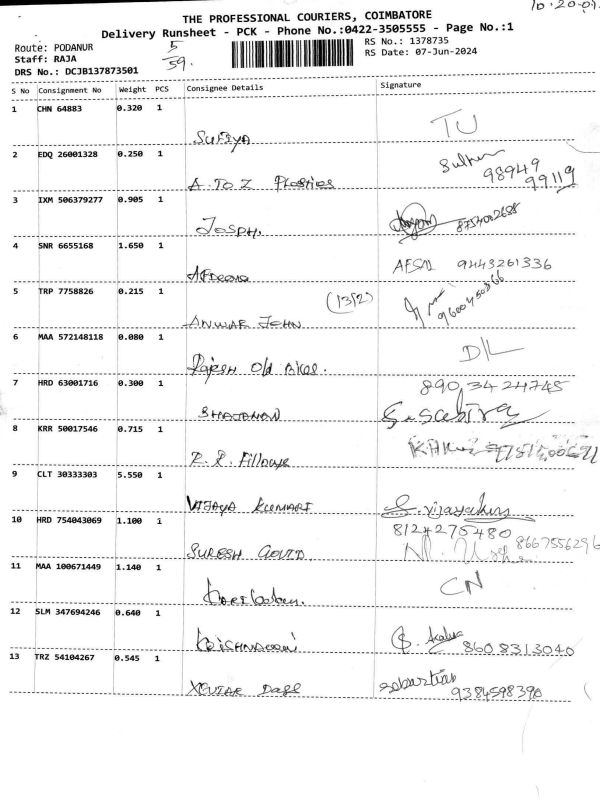 10-20-01
THE PROFESSIONAL COURIERS, COIMBATORE
Delivery Runsheet - PCK - Phone No.:0422-3505555 - Page No.:1
Route: PODANUR 5 RS No.: 1378735
Staff: RAJA 59. RS Date: 07-Jun-2024
DRS No.: DCJB137873501
S No Consignment No Weight PCS Consignee Details Signature
1 CHN 64883 0.320 1
SUFIYA TU
2 EDQ 26001328 0.250 1
A. TO Z Plastics 98949
99119
3 IXM 506379277 0.905 1
JOSPH. 8754002688
4 SNR 6655168 1.650 1
AFSAL 9443261336
5 TRP 7758826 0.215 1 (1312)
ANWAR JOHN 9600450866
6 MAA 572148118 0.080 1
Rajesh Old Bikes. D/L
7 HRD 63001716 0.300 1 890 34 24745
SHAJAHAN S. Sabira
8 KRR 50017546 0.715 1
P. R.
9 CLT 30333303 5.550 1
VIJAYA KUMARI S. vijayakumari
10 HRD 754043069 1.100 1 8124275480
SURESH 8667556296
11 MAA 100671449 1.140 1
CN
12 SLM 347694246 0.640 1
8608313040
13 TRZ 54104267 0.545 1
XEVIAR DASS sebastian
9384598390